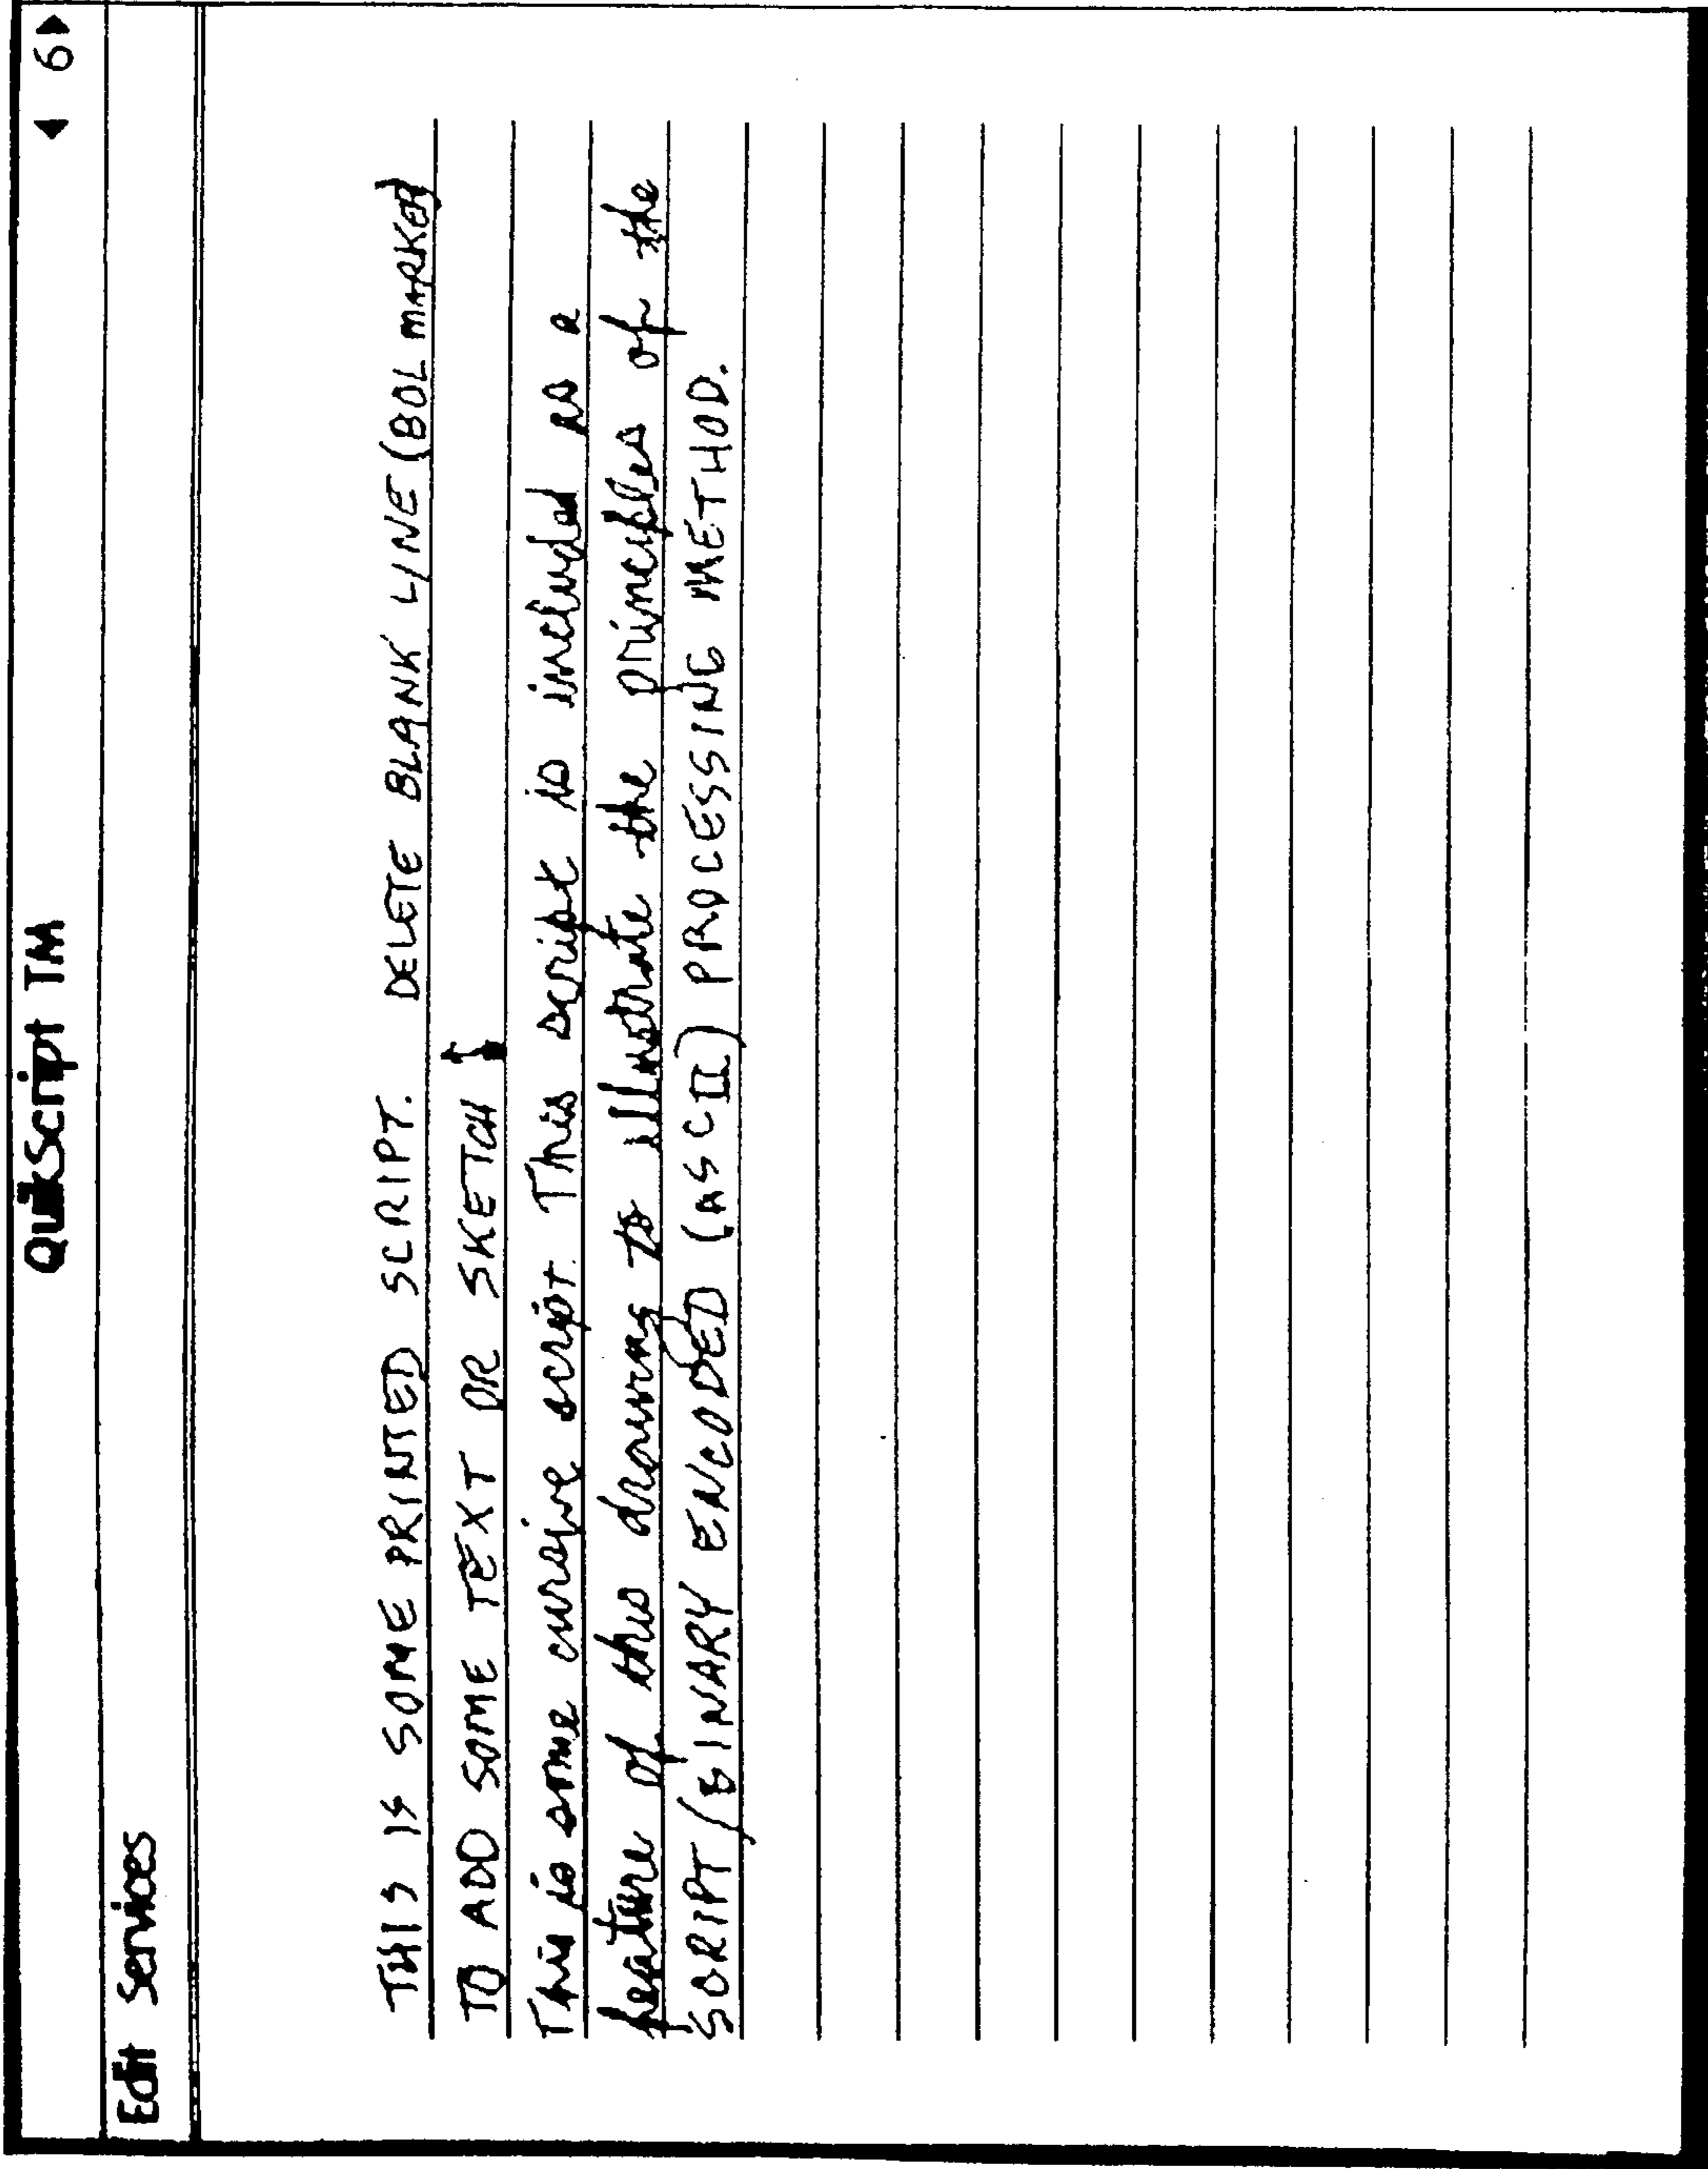 QuikScript TM
◀ 6 ▶
Edit Services
THIS IS SOME PRINTED SCRIPT. DELETE BLANK LINE (BOL MARKER)
TO ADD SOME TEXT OR SKETCH
This is some cursive script. This script is included as a
feature of this drawing to illustrate the principles of the
SCRIPT/BINARY ENCODED (ASCII) PROCESSING METHOD.